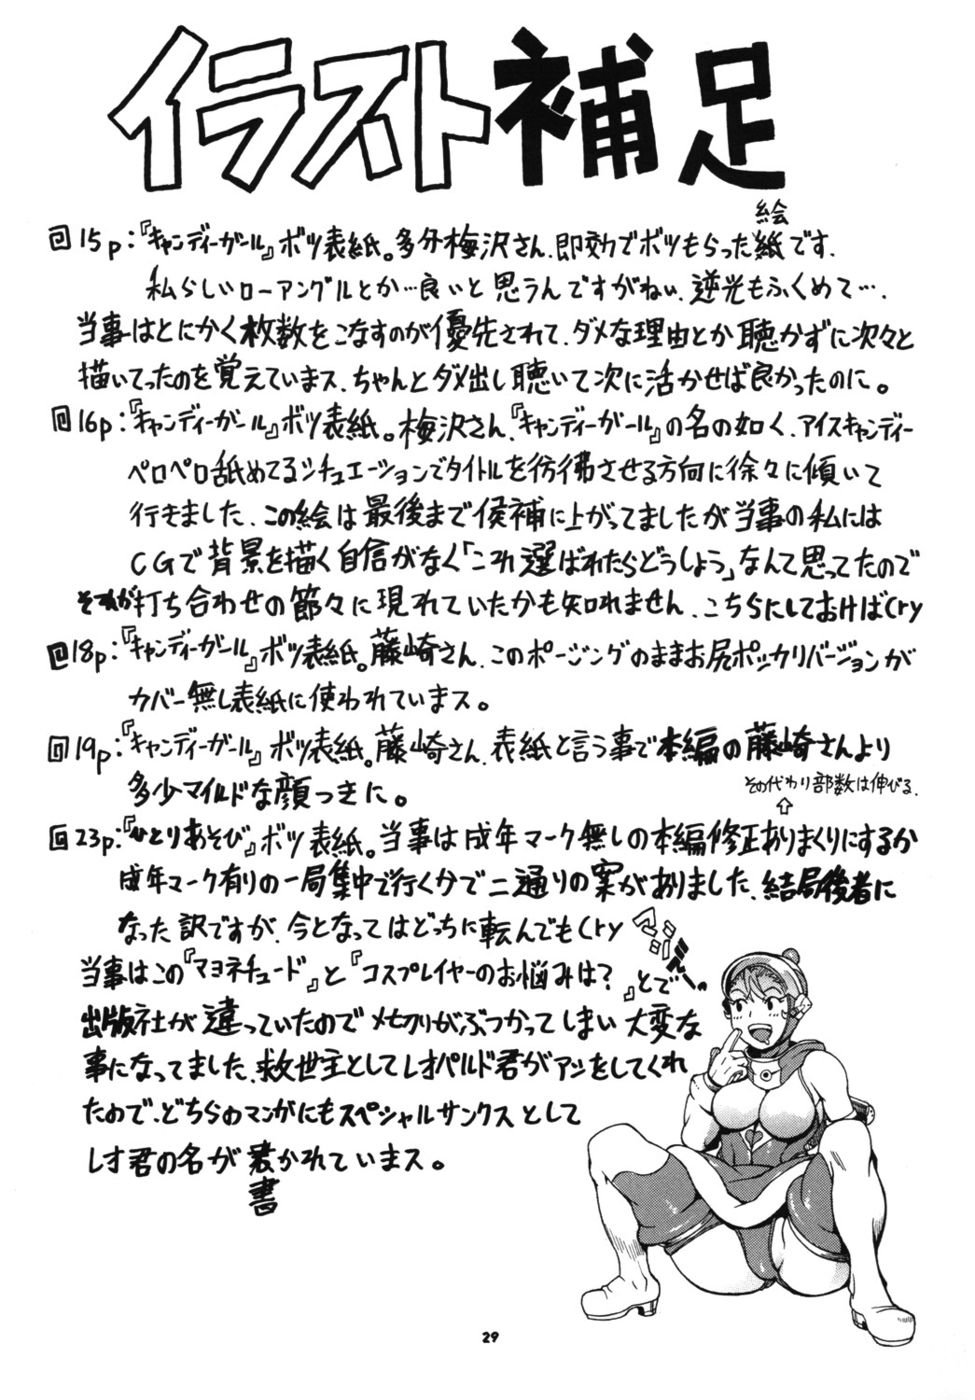 イラスト補足
回15p:『キャンディーガール』ボツ表紙。多分梅沢さん、即効でボツもらった紙です。
絵
私らしいローアングルとか…良いと思うんですがねぃ、逆光もふくめて…。
当事はとにかく枚数をこなすのが優先されて、ダメな理由とか聴かずに次々と
描いてったのを覚えていまス、ちゃんとダメ出し聴いて次に活かせば良かったのに。
回16p:『キャンディーガール』ボツ表紙。梅沢さん、『キャンディーガール』の名の如く、アイスキャンディー
ペロペロ舐めてるシチュエーションでタイトルを彷彿させる方向に徐々に傾いて
行きました、この絵は最後まで候補に上がってましたが当事の私には
CGで背景を描く自信がなく「これ選ばれたらどうしよう」なんて思ってたので
それが打ち合わせの節々に現れていたかも知れません、こちらにしておけばCry
回18p:『キャンディーガール』ボツ表紙。藤崎さん、このポージングのままお尻ポッカリバージョンが
カバー無し表紙に使われていまス。
回19p:『キャンディーガール』ボツ表紙。藤崎さん、表紙と言う事で本編の藤崎さんより
多少マイルドな顔つきに。
その代わり部数は伸びる。
回23p:『ひとりあそび』ボツ表紙。当事は成年マーク無しの本編修正ありまくりにするか
成年マーク有りの一局集中で行く分で二通りの案がありました、結局後者に
なった訳ですが、今となってはどっちに転んでもCry
当事はこの『マヨネチュード』と『コスプレイヤーのお悩みは?』とで
出版社が違っていたのでメセカリがぶつかってしまい大変な
事になってました、救世主としてレオパルド君がアシをしてくれ
たので、どちらのマンガにもスペシャルサンクスとして
レオ君の名が書かれていまス。
書
29